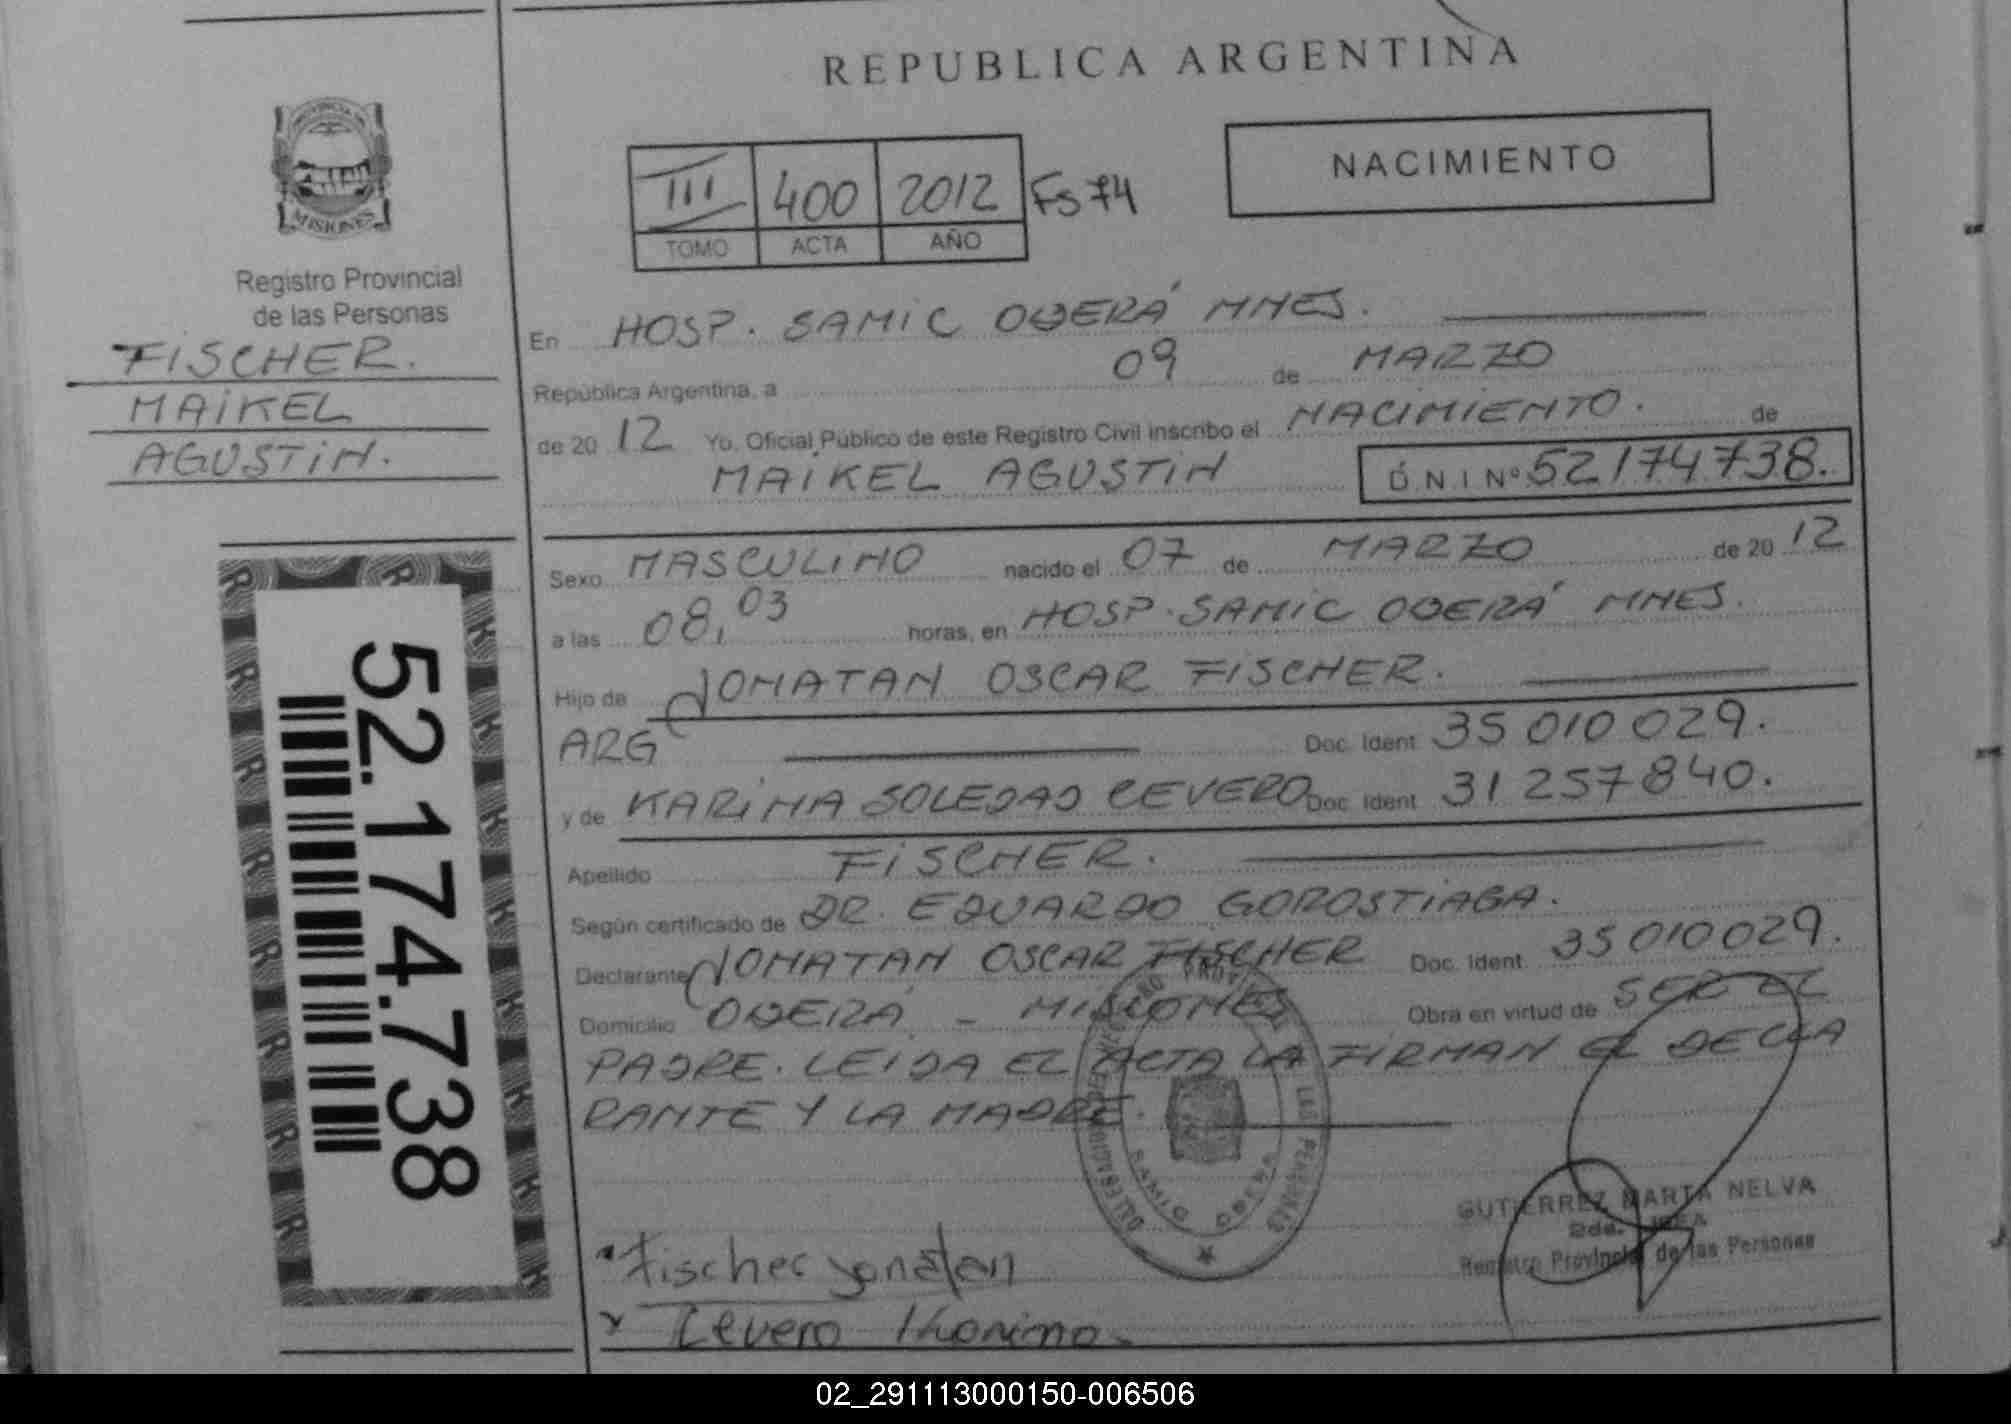 REPUBLICA ARGENTINA
PROVINCIA DE
MISIONES
Registro Provincial
de las Personas
FISCHER.
MAIKEL
AGUSTIN.
52.174.738
NACIMIENTO
III 400 2012 Fs 74
TOMO ACTA AÑO
En HOSP. SAMIC OBERÁ MNES.
República Argentina, a 09 de MARZO
de 20 12 Yo, Oficial Público de este Registro Civil inscribo el NACIMIENTO. de
MAIKEL AGUSTIN D.N.I Nº 52174738.
Sexo MASCULINO nacido el 07 de MARZO de 20 12
a las 08,03 horas, en HOSP. SAMIC OBERÁ MNES.
Hijo de JONATAN OSCAR FISCHER.
ARG Doc. Ident 35 010 029.
y de KARINA SOLEDAD CEVERO Doc. Ident 31 257 840.
Apellido FISCHER.
Según certificado de DR. EDUARDO GOROSTIAGA.
Declarante JONATAN OSCAR FISCHER Doc. Ident. 35 010 029.
Domicilio OBERÁ - MISIONES Obra en virtud de SER EL
PADRE. LEIDA EL ACTA LA FIRMAN EL DECLA
RANTE Y LA MADRE.
GUTIERREZ MARTA NELVA
2da.
Registro Provincial de las Personas
Fischer Jonatan
Cevero
02_291113000150-006506